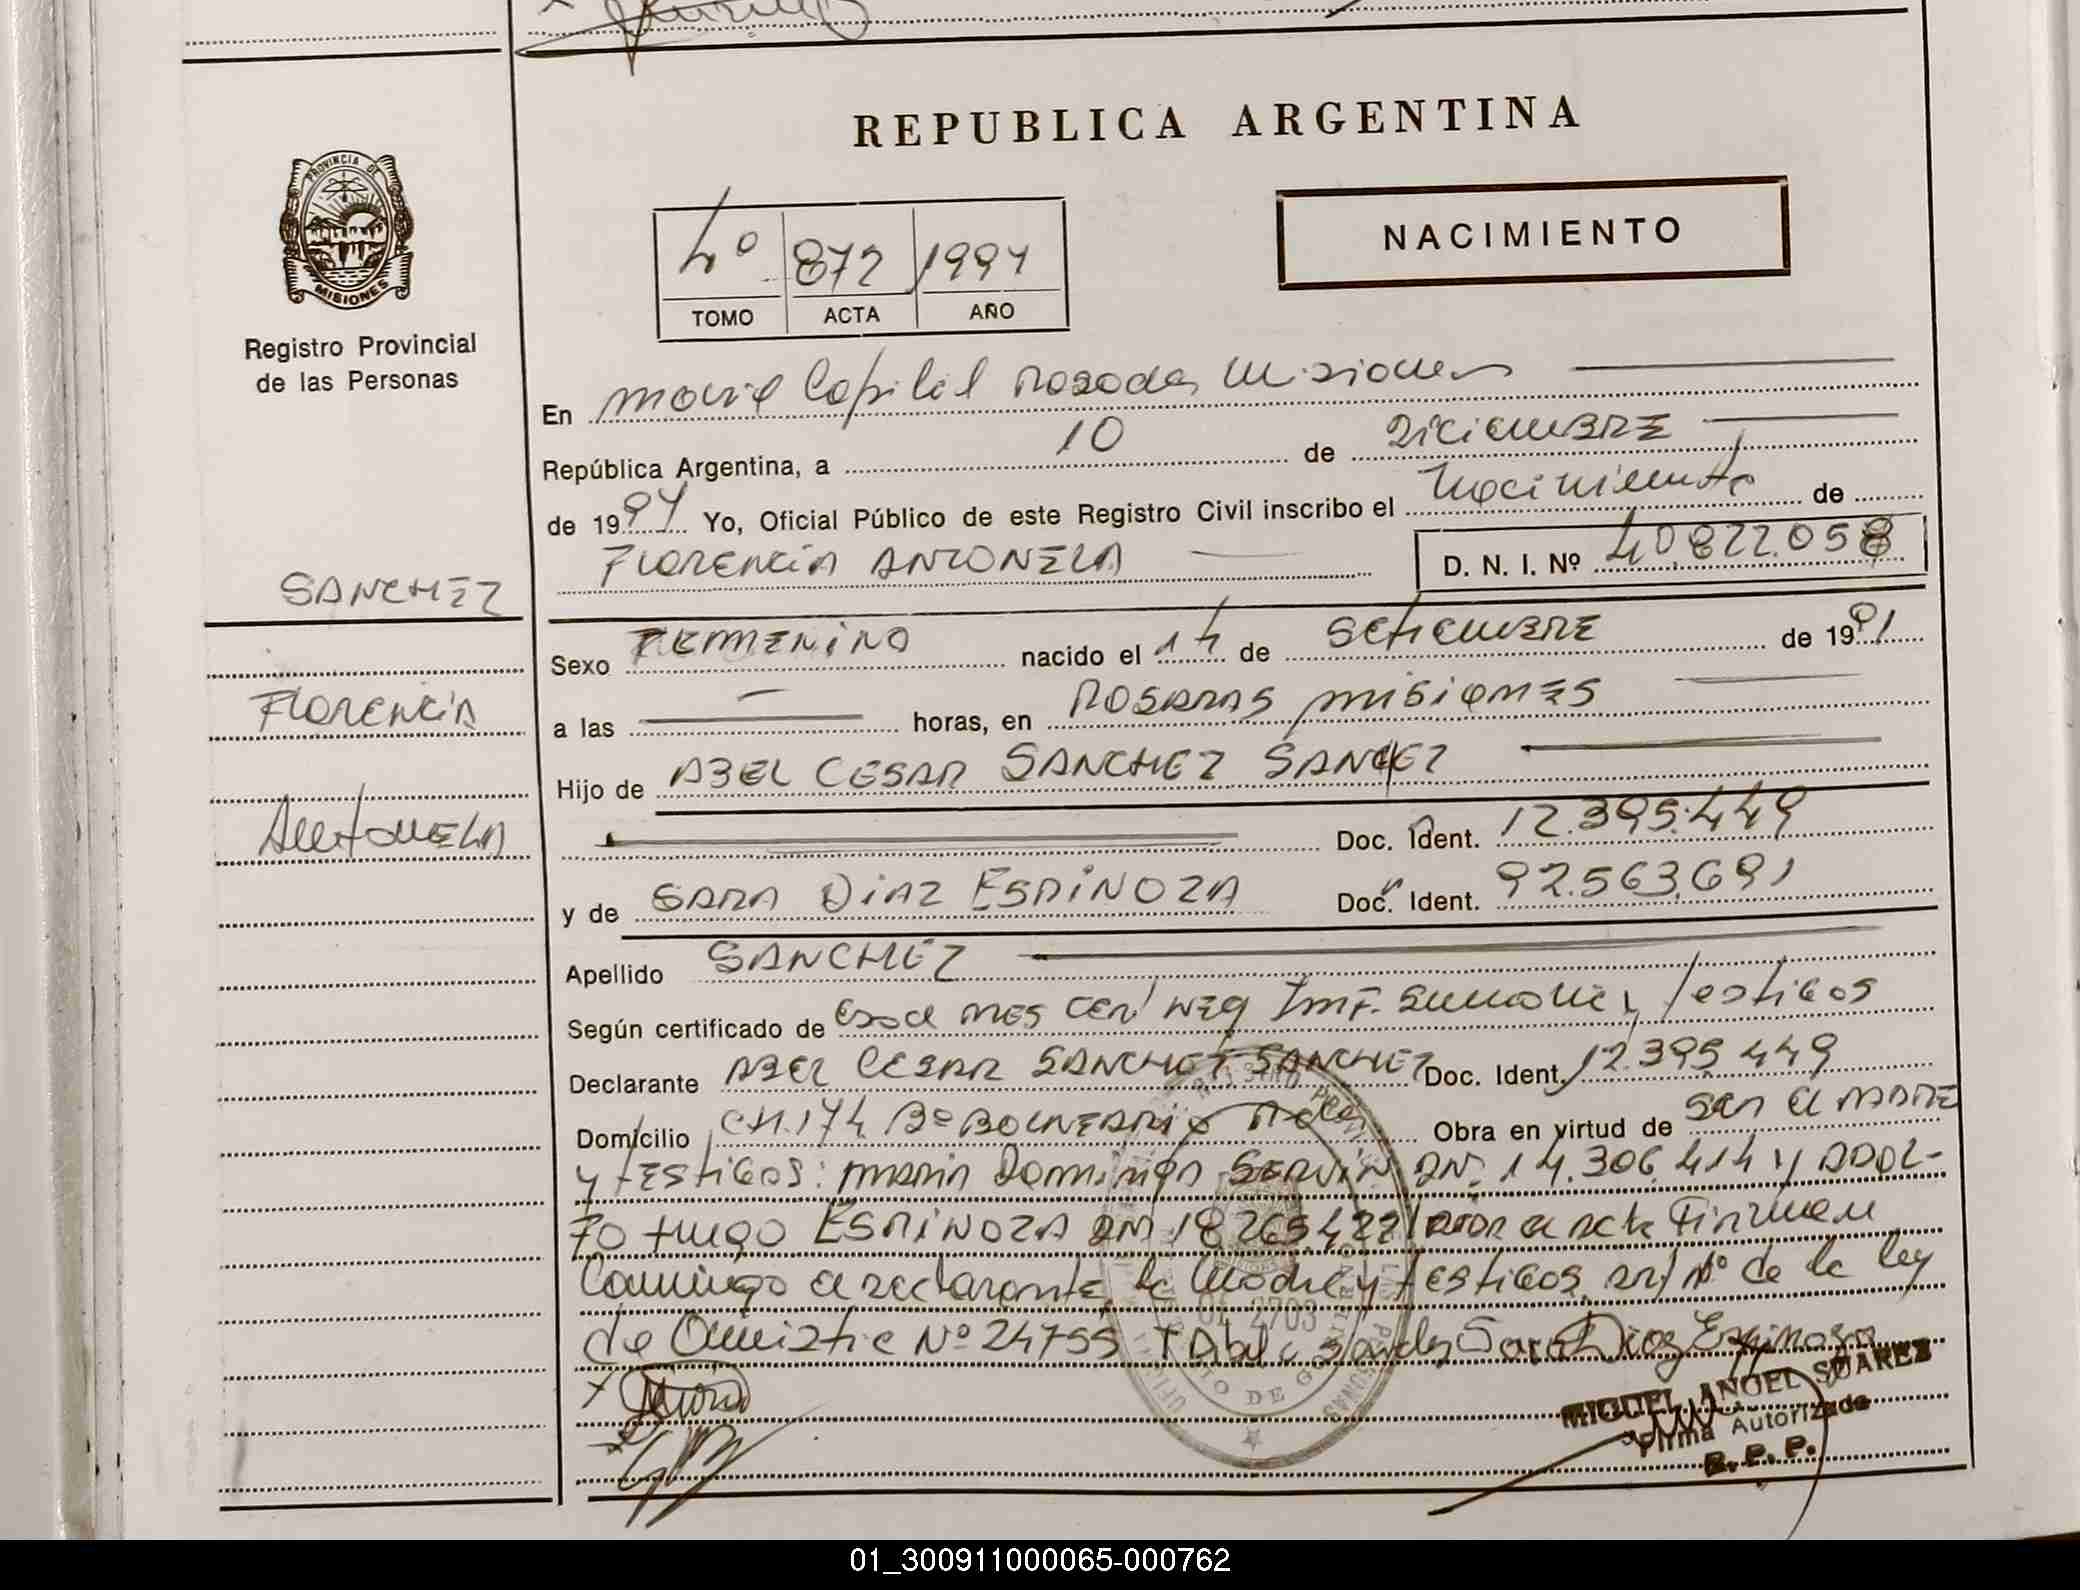 REPUBLICA ARGENTINA
PROVINCIA DE
MISIONES
Registro Provincial
de las Personas
4º 872 1997
TOMO ACTA AÑO
NACIMIENTO
En Movil Capital Posadas Misiones
República Argentina, a 10 de Diciembre
de 1997 Yo, Oficial Público de este Registro Civil inscribo el Nacimiento de
FLORENCIA ANTONELA D. N. I. Nº 40.822.058
SANCHEZ
Florencia
Antonela
Sexo FEMENINO nacido el 14 de SETIEMBRE de 1991
a las horas, en POSADAS MISIONES
Hijo de ABEL CESAR SANCHEZ SANCHEZ
Doc. Ident. 12.395.449
y de SARA DIAZ ESPINOZA Doc. Ident. 92.563.691
Apellido SANCHEZ
Según certificado de Neg Inf. Sumaria y Testigos
Declarante ABEL CESAR SANCHEZ SANCHEZ Doc. Ident. 12.395.449
Domicilio CH.174 Bº Obra en virtud de ser el PADRE
y TESTIGOS: MARIA Dominga SERVIN DN. 14.306.414 y ADOL-
FO HUGO ESPINOZA DNI 18.265.422 el acta Firman
Conmigo el declarante, la Madre y testigos, art Nº de la ley
de Amistie Nº 24755 Sara Diaz Espinoza
01 2703
MIGUEL ANGEL SUAREZ
Firma Autorizada
R. P. P.
01_300911000065-000762